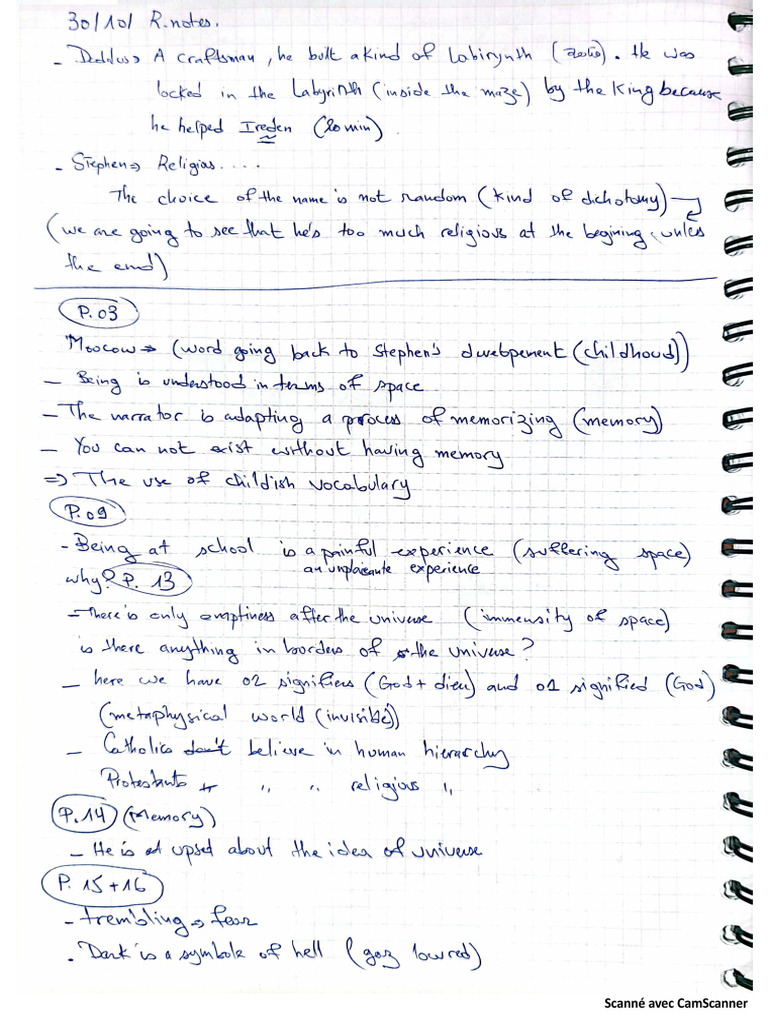 30/10/ R.notes.
- Dedalus⇒ A craftsman, he built a kind of Labirynth. He was
locked in the Labyrinth (inside the maze) by the King because
he helped Ireden (20 min).
- Stephen⇒ Religias....
The choice of the name is not random (kind of dichotomy)
(we are going to see that he's too much religious at the begining, unles
the end)
P.03
Moocow⇒ (word going back to Stephen's (childhood))
- Being is understood in terms of space.
- The narrator is adapting a process of memorizing (memory)
- You can not exist without having memory
⇒ The use of childish vocabulary
P.09
- Being at school is a painful experience (suffering space)
an unplaisante experience
why? P. 13
- There is only emptiness after the universe (immensity of space)
is there anything in boorders of the universe?
- here we have 02 signifiers (God + dieu) and 01 signified (God)
(metaphysical world (invisible))
- Catholics don't believe in human hierarchy
Protestants " " " religious "
P.14 (Memory)
- He is upset about the idea of universe
P. 15+16
- trembling → fear
- Dark is a symbole of hell (gaz lowred)
Scanné avec CamScanner